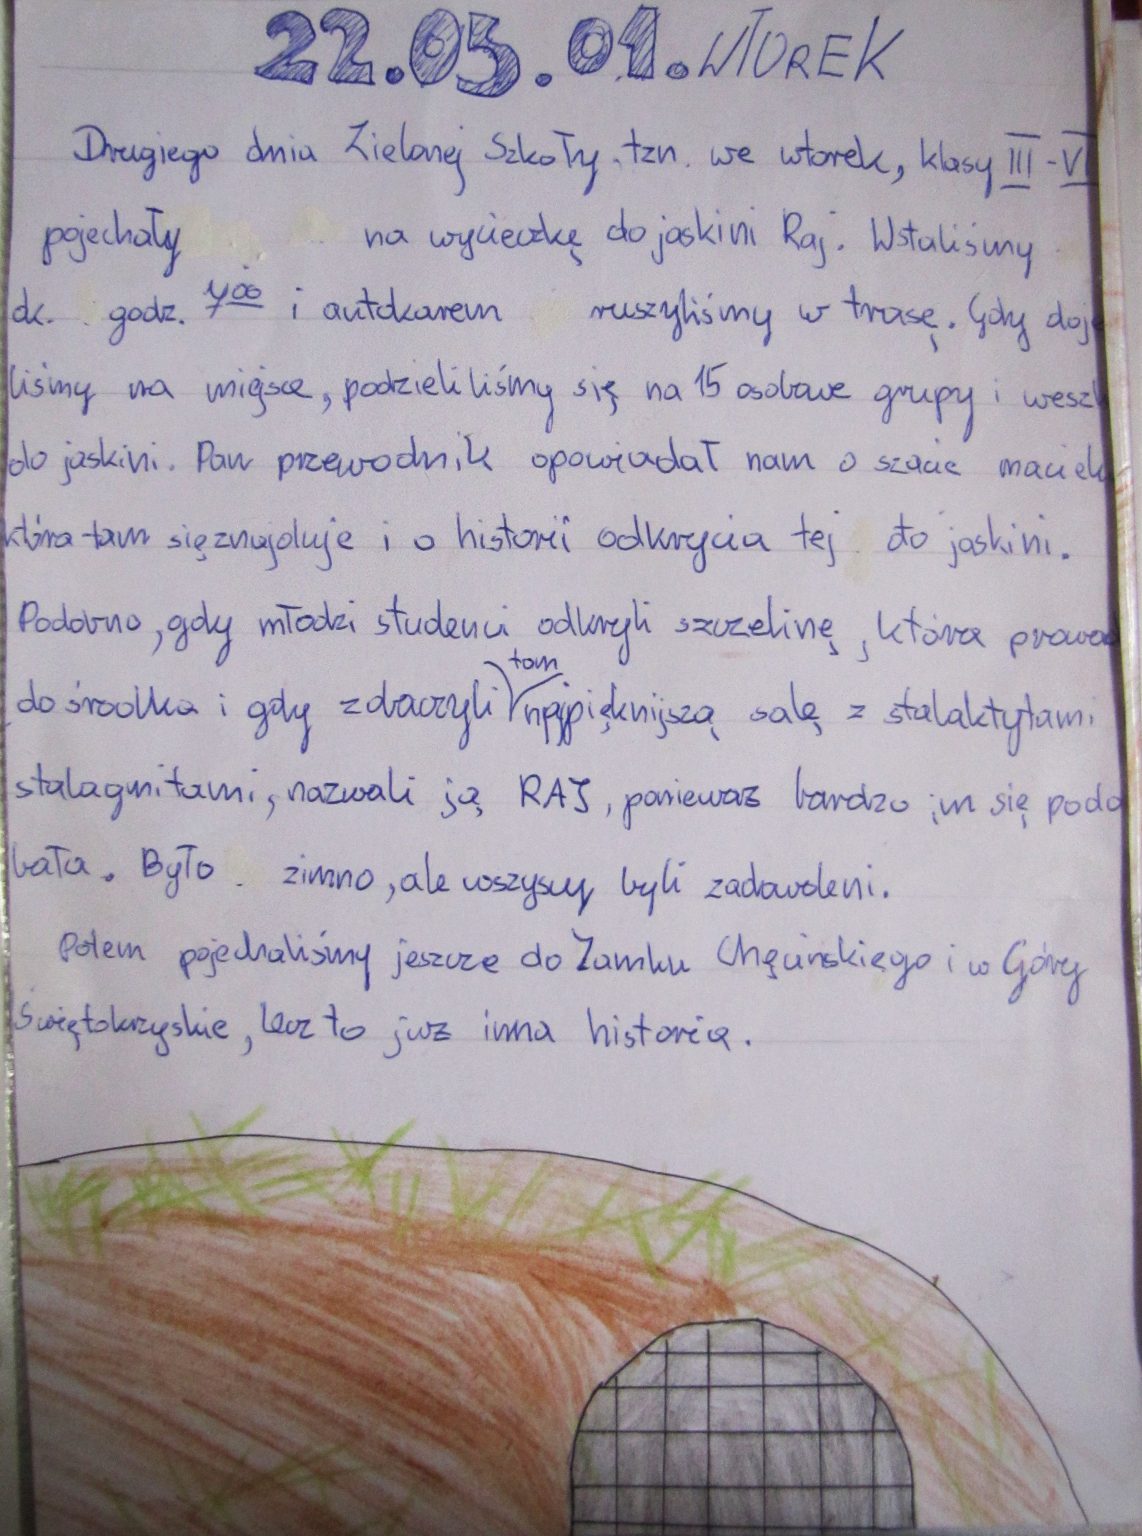 22.05.01. WTOREK
Drugiego dnia Zielonej Szkoły, tzn. we wtorek, klasy III-VI
pojechały na wycieczkę do jaskini Raj. Wstaliśmy
ok. godz. 7⁰⁰ i autokarem ruszyliśmy w trasę. Gdy doje
liśmy na miejsce, podzieliliśmy się na 15 osobowe grupy i weszl
do jaskini. Pan przewodnik opowiadał nam o szacie naciek
która tam się znajduje i o historii odkrycia tej do jaskini.
Podobno, gdy młodzi studenci odkryli szczelinę, która prowad
do środka i gdy zobaczyli tam najpięknijszą salę z stalaktytami i
stalagmitami, nazwali ją RAJ, ponieważ bardzo im się podo
bała. Było zimno, ale wszyscy byli zadowoleni.
Potem pojechaliśmy jeszcze do Zamku Chęcińskiego i w Góry
Świętokrzyskie, lecz to już inna historia.